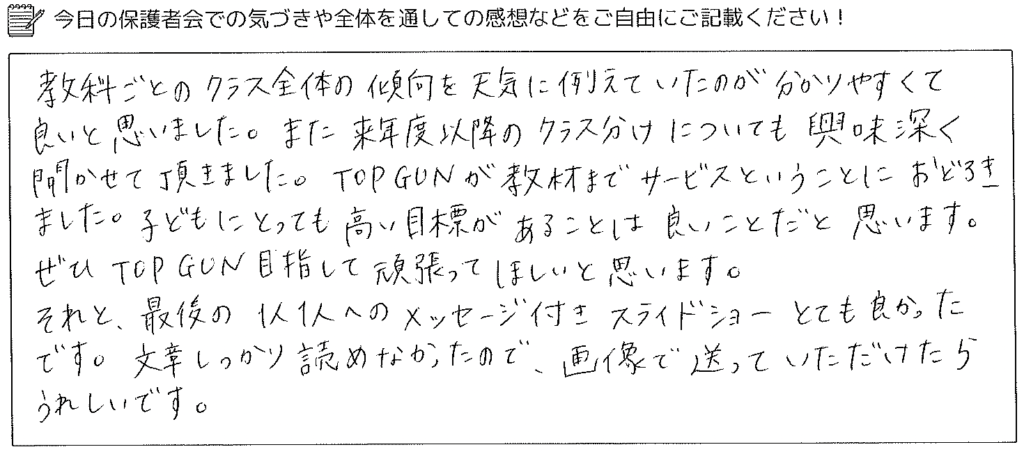 今日の保護者会での気づきや全体を通しての感想などをご自由にご記載ください！
教科ごとのクラス全体の傾向を天気に例えていたのが分かりやすくて
良いと思いました。また来年度以降のクラス分けについても興味深く
聞かせて頂きました。TOP GUNが教材までサービスということにおどろき
ました。子どもにとっても高い目標があることは良いことだと思います。
ぜひTOP GUN目指して頑張ってほしいと思います。
それと、最後の1人1人へのメッセージ付きスライドショーとても良かった
です。文章しっかり読めなかったので、画像で送っていただけたら
うれしいです。